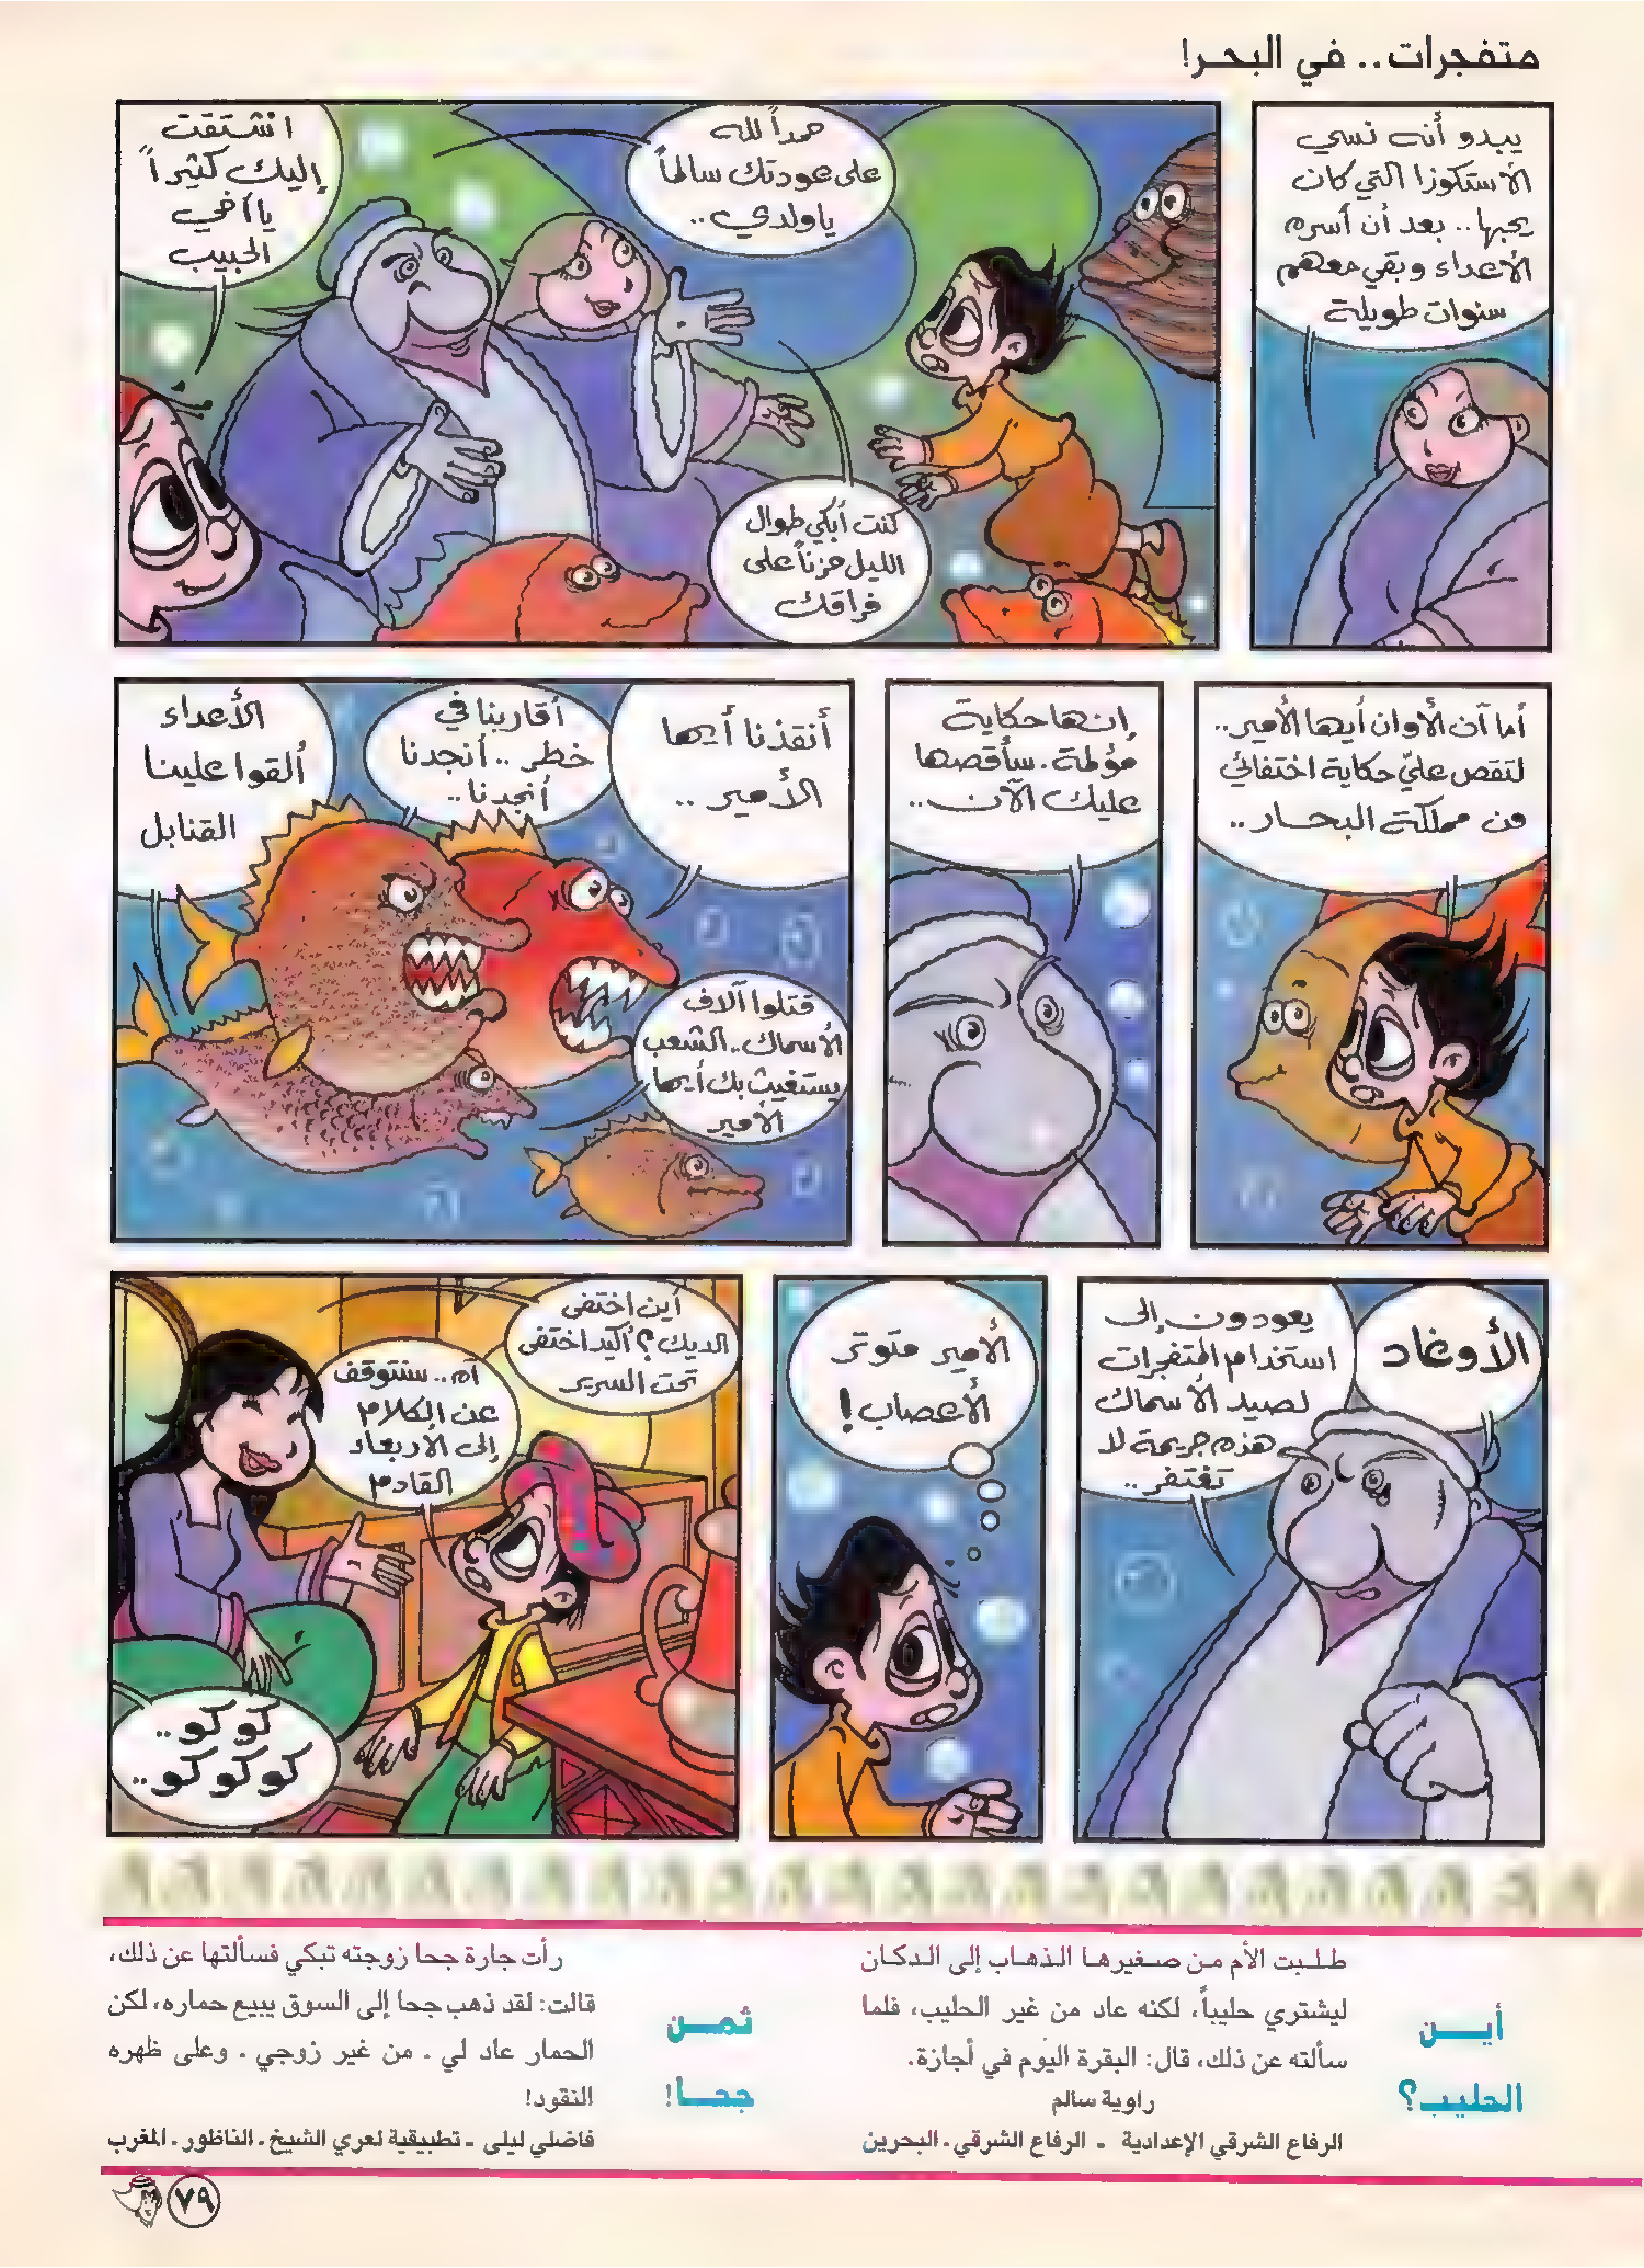 متفجرات.. في البحر!
يبدو أنه نسي
الأستكوزا التي كان
يحبها.. بعد أن أسره
الأعداء وبقي معهم
سنوات طويلة
حمداً لله
على عودتك سالماً
يا ولدي..
كنت أبكي طوال
الليل حزناً على
فراقك
اشتقت
إليك كثيراً
يا أخي
الحبيب
أما آن الأوان أيها الأمير..
لتقص عليّ حكاية اختفائك
من مملكة البحار..
إنها حكاية
مؤلمة. سأقصها
عليك الآن..
أنقذنا أيها
الأمير..
أقاربنا في
خطر.. أنجدنا
أنجدنا..
الأعداء
ألقوا علينا
القنابل
قتلوا آلاف
الأسماك.. الشعب
يستغيث بك أيها
الأمير
الأوغاد
يعودون إلى
استخدام المتفجرات
لصيد الأسماك
هذه جريمة لا
تغتفر..
الأمير متوتر
الأعصاب!
أين اختفى
الديك؟ أكيد اختفى
تحت السرير
آه.. سنتوقف
عن الكلام
إلى الأربعاء
القادم
كوكو..
كوكوكو..
أين
الحليب؟
طلبت الأم من صغيرها الذهاب إلى الدكان
ليشتري حليباً، لكنه عاد من غير الحليب، فلما
سألته عن ذلك، قال: البقرة اليوم في أجازة.
راوية سالم
الرفاع الشرقي الإعدادية - الرفاع الشرقي. البحرين
ثمن
جحا!
رأت جارة جحا زوجته تبكي فسألتها عن ذلك،
قالت: لقد ذهب جحا إلى السوق يبيع حماره، لكن
الحمار عاد لي . من غير زوجي . وعلى ظهره
النقود!
فاضلي ليلى - تطبيقية لعري الشيخ. الناظور. المغرب
٧٩